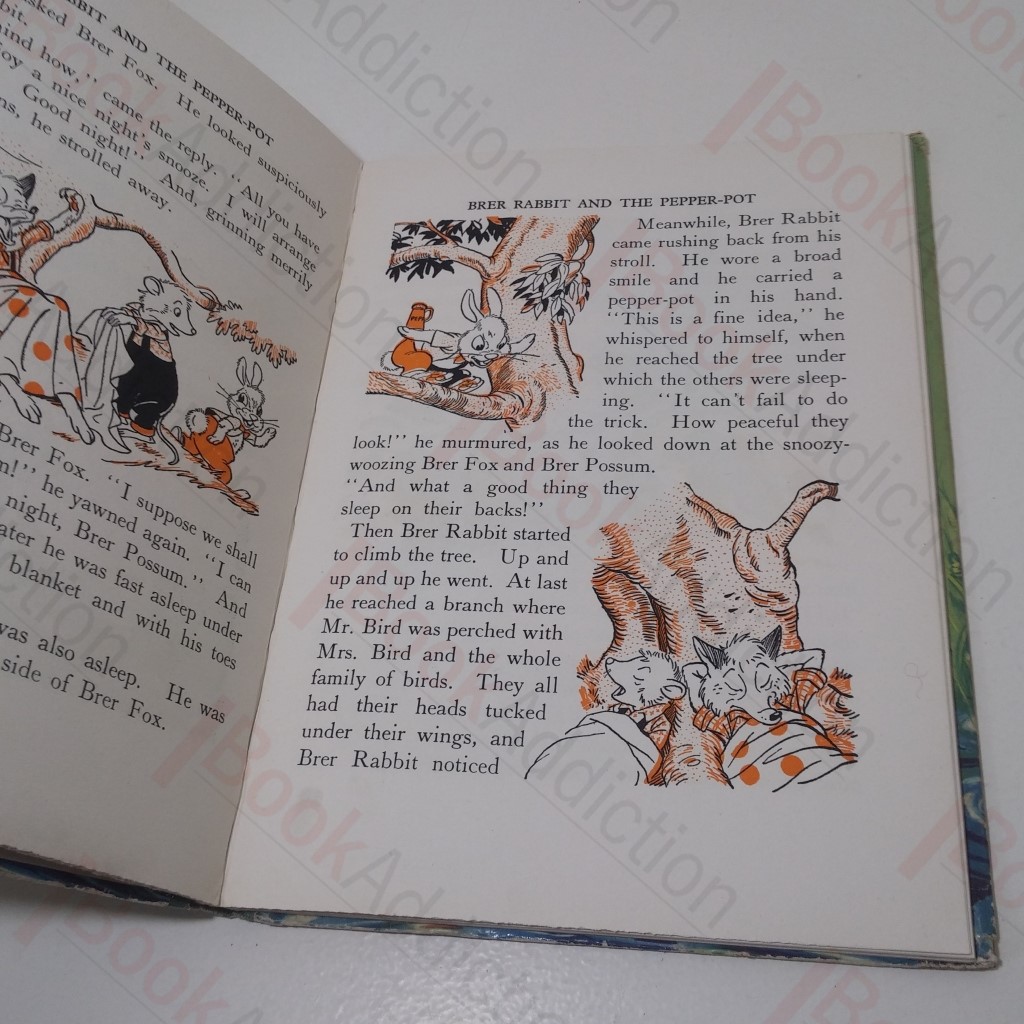 BBIT AND THE PEPPER-POT
asked Brer Fox. He looked suspiciously
bit.
mind how," came the reply. "All you have
joy a nice night's snooze. I will arrange
Good night!" And, grinning merrily
ns, he strolled away.
Brer Fox. "I suppose we shall
m!" he yawned again. "I can
night, Brer Possum." And
ater he was fast asleep under
blanket and with his toes
was also asleep. He was
side of Brer Fox.
BRER RABBIT AND THE PEPPER-POT
Meanwhile, Brer Rabbit
came rushing back from his
stroll. He wore a broad
smile and he carried a
pepper-pot in his hand.
"This is a fine idea," he
whispered to himself, when
he reached the tree under
which the others were sleep-
ing. "It can't fail to do
the trick. How peaceful they
look!" he murmured, as he looked down at the snoozy-
woozing Brer Fox and Brer Possum.
"And what a good thing they
sleep on their backs!"
Then Brer Rabbit started
to climb the tree. Up and
up and up he went. At last
he reached a branch where
Mr. Bird was perched with
Mrs. Bird and the whole
family of birds. They all
had their heads tucked
under their wings, and
Brer Rabbit noticed
BookAddiction